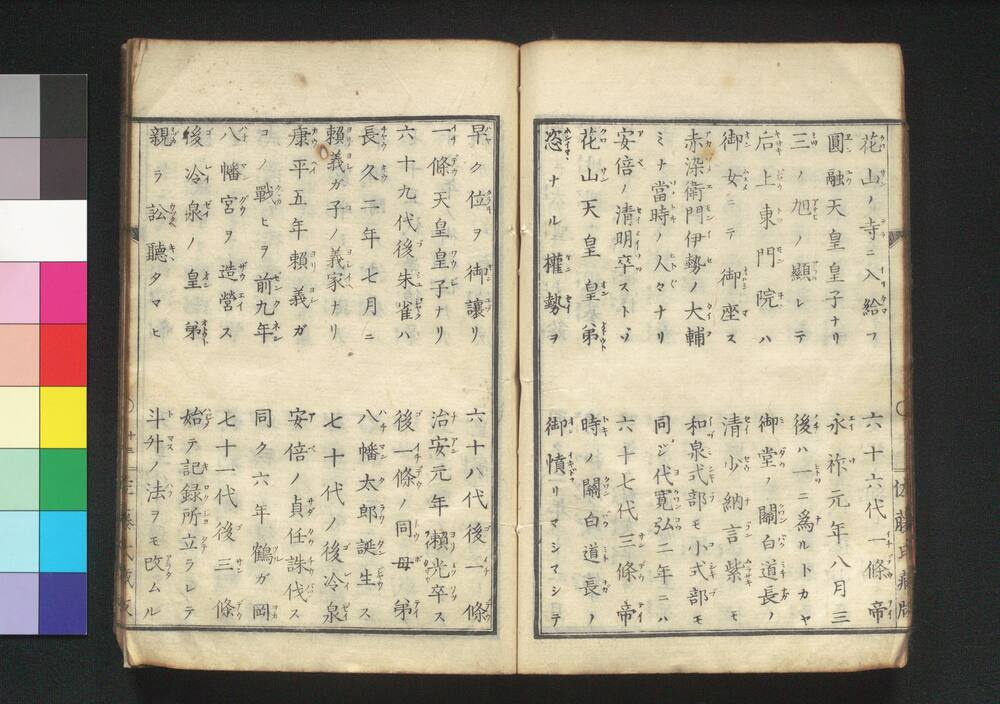 花山ノ寺ニ入給フ
六十六代一條帝
圓融天皇皇子ナリ
永祚元年八月三
三ノ旭ノ顯レテ
後ハ一ニ爲ルトカヤ
后上東門院ハ
御堂ノ關白道長ノ
御女ニテ御座ス
清少納言紫モ
赤染衛門伊勢ノ大輔
和泉式部モ小式部モ
ミナ當時ノ人々ナリ
同ジ代寛弘二年ニハ
安倍ノ清明卒ストゾ
六十七代三條帝
花山天皇皇弟
時ノ關白道長ノ
恣ナル權勢ヲ
御憤リマシマシテ
早ク位ヲ御讓リ
六十八代後一條
一條天皇皇子ナリ
治安元年賴光卒ス
六十九代後朱雀ハ
後一條ノ同母弟
長久二年七月ニ
八幡太郎誕生ス
賴義ガ子ノ義家ナリ
七十代ノ後冷泉
康平五年賴義ガ
安倍ノ貞任誅伐ス
コノ戰ヒヲ前九年
同ク六年鶴ガ岡
八幡宮ヲ造營ス
七十一代後三條
後冷泉ノ皇弟
始テ記録所立ラレテ
親ラ訟聽タマヒ
斗外ノ法ヲモ改ムル